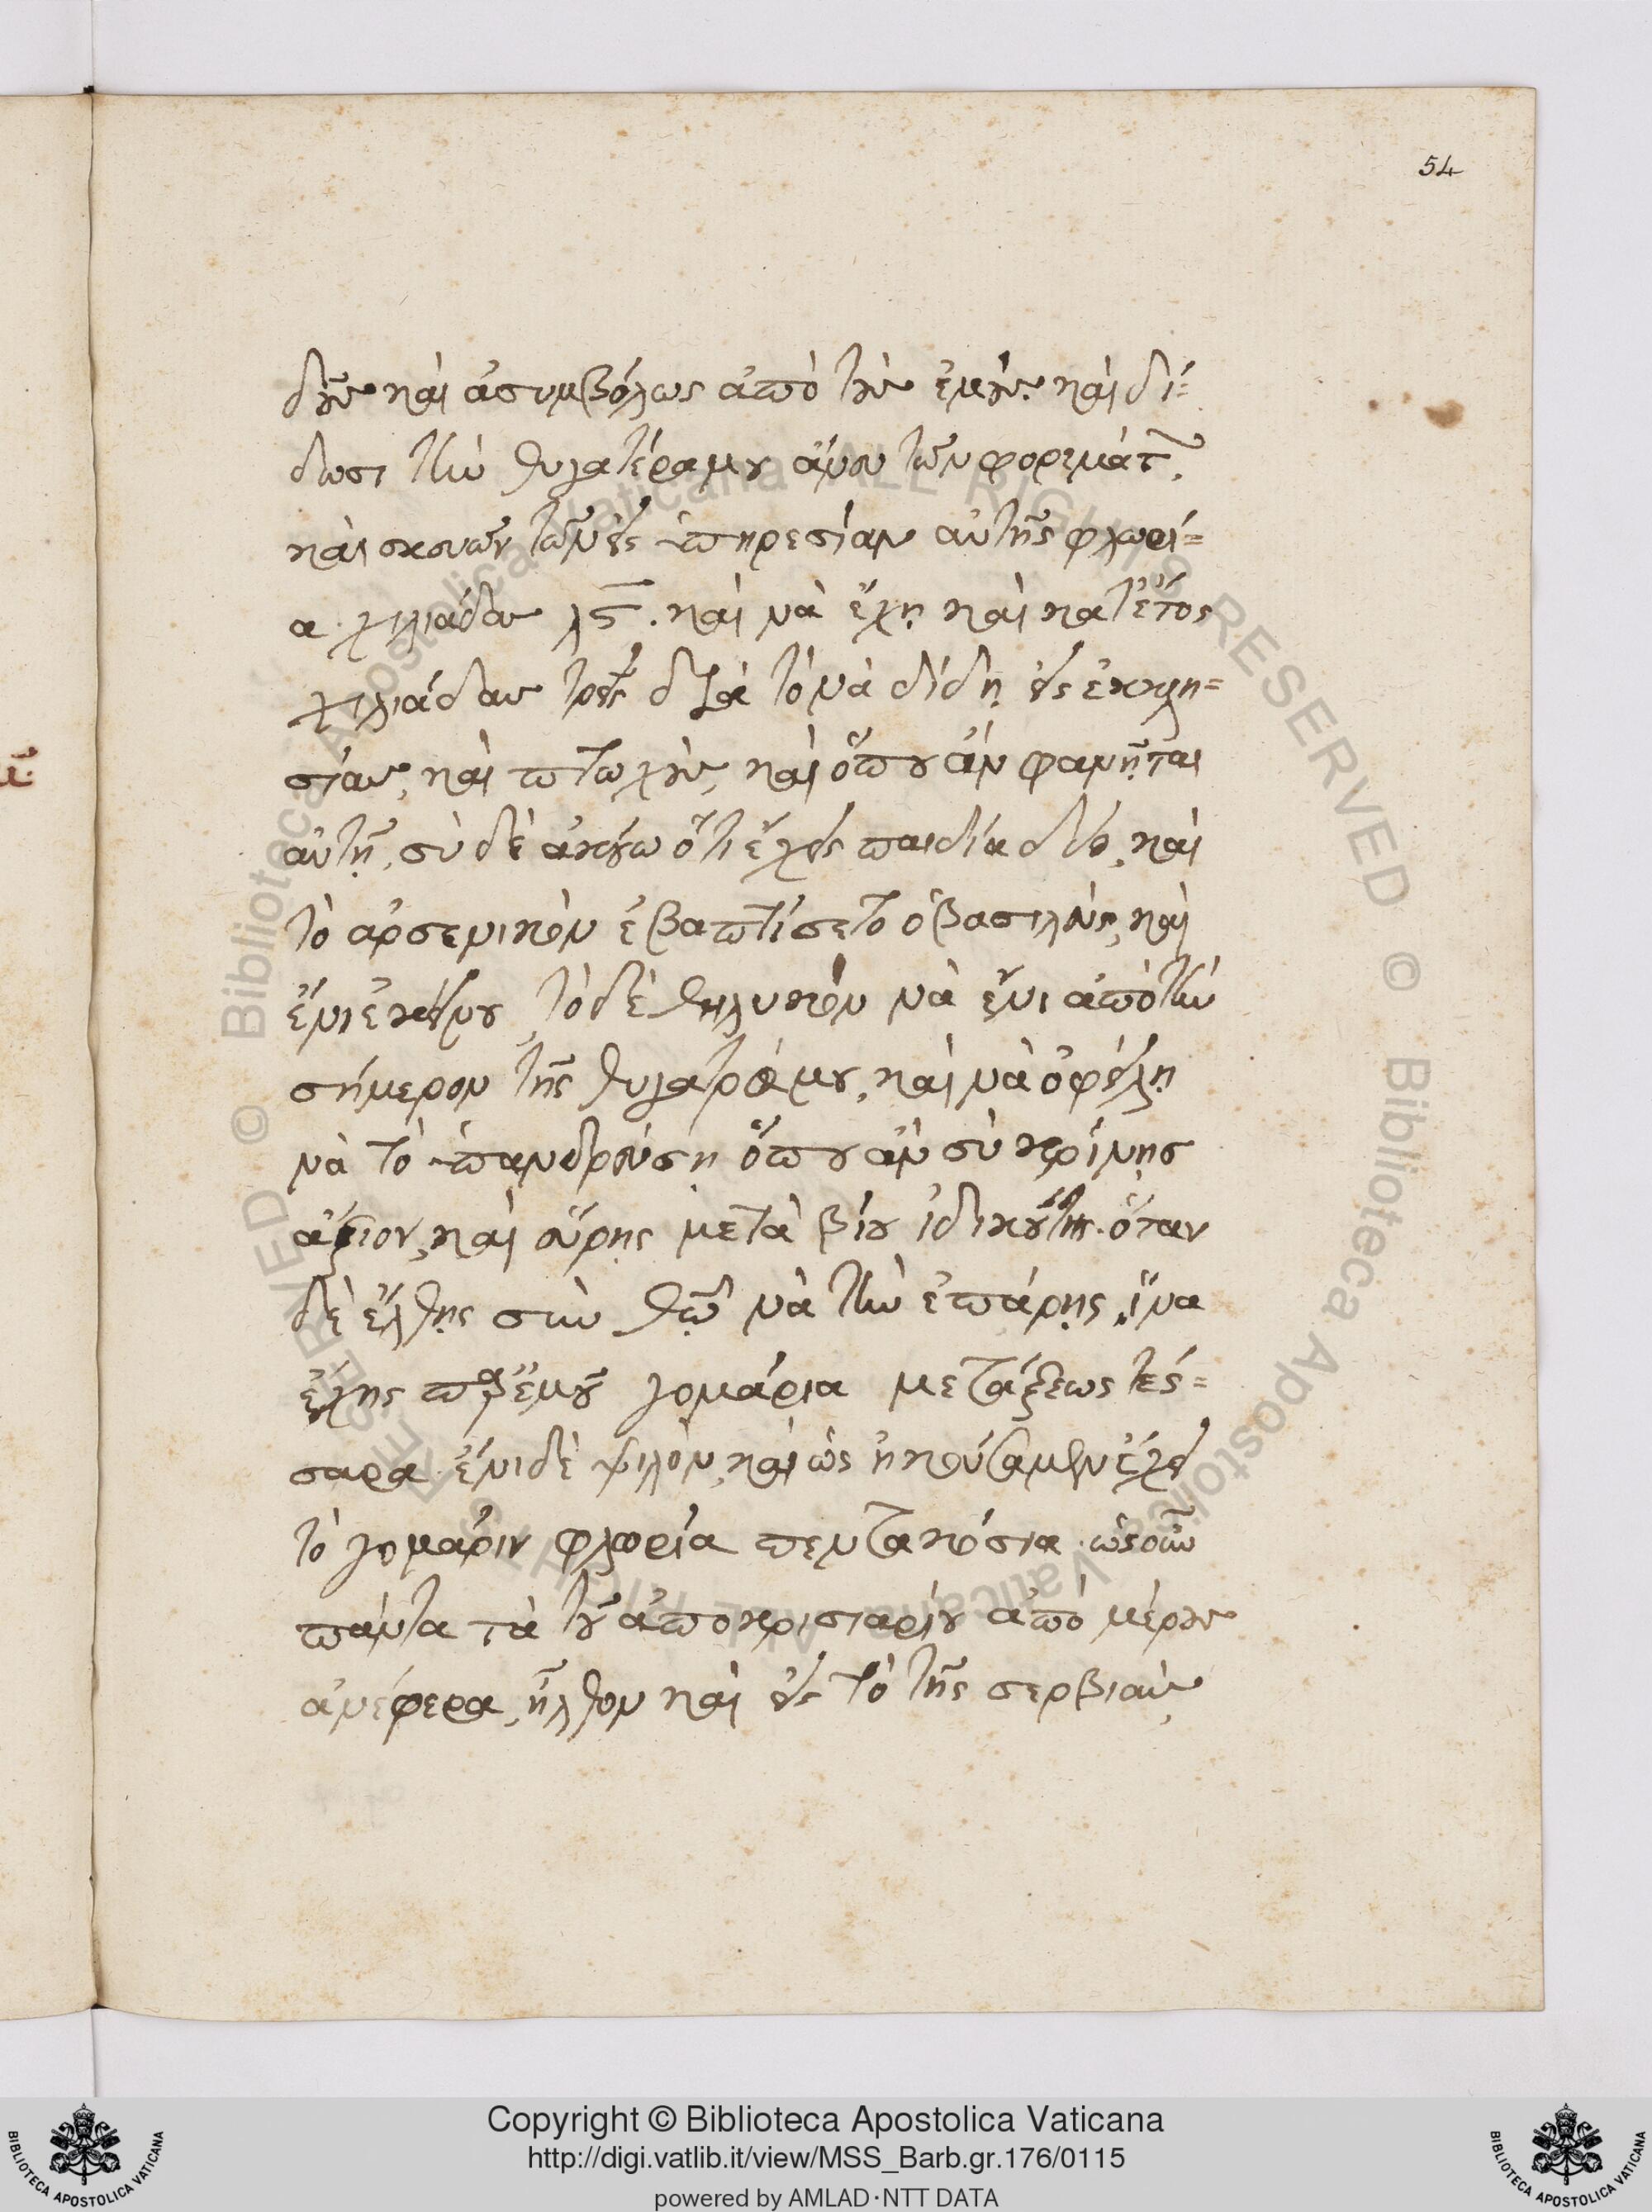 54
δῶν καὶ ἀσυμβόλως ἀπὸ τῶν ἐμῶν. καὶ δί=
δωσι τὴν θυγατέρα μου ἄνευ τῶν φορεμάτ,
καὶ σκευῶν τῶν εἰς ὑπηρεσίαν αὐτῆς φλωρί=
α χιλιάδων λϛ. καὶ νὰ ἔχῃ καὶ κατ' ἔτος
χιλιάδων τρεῖς διὰ τὸ νὰ δίδῃ εἰς ἐκκλη=
σίαν, καὶ πτωχῶν, καὶ ὅπου ἂν φανῆται
αὐτῇ, σὺ δὲ ἀκούω ὅτι ἔχεις παιδία δύο, καὶ
τὸ ἀρσενικὸν ἐβαπτίσε το ὁ βασιλεὺς, καὶ
ἔνι ἐκείνου, τὸ δὲ θηλυκὸν νὰ ἔνι ἀπὸ τὴν
σήμερον τῆς θυγατρός μου, καὶ νὰ ὀφείλῃ
νὰ τὸ ὑπανδρεύσῃ ὅπου ἂν σὺ κρίνῃς
ἄξιον, καὶ εὕρῃς μετὰ βίου ἰδικοῦ της. ὅταν
δὲ ἔλθῃς σὺν θεῷ νὰ τὴν ἐπάρῃς, ἵνα
ἔχῃς παρ' ἐμοῦ γομάρια μετάξεως τέσ=
σαρα. ἔνι δὲ ψιλὸν, καὶ ὡς ἠκούσαμεν ἔχει
τὸ γομάριν φλωρία πεντακόσια. ὡς οὖν
πάντα τὰ τοῦ ἀποκρισιαρίου ἀπὸ μέρων
ἀνέφερα, ἦλθον καὶ εἰς τὸ τῆς σερβιῶν,
Copyright © Biblioteca Apostolica Vaticana
http://digi.vatlib.it/view/MSS_Barb.gr.176/0115
powered by AMLAD·NTT DATA